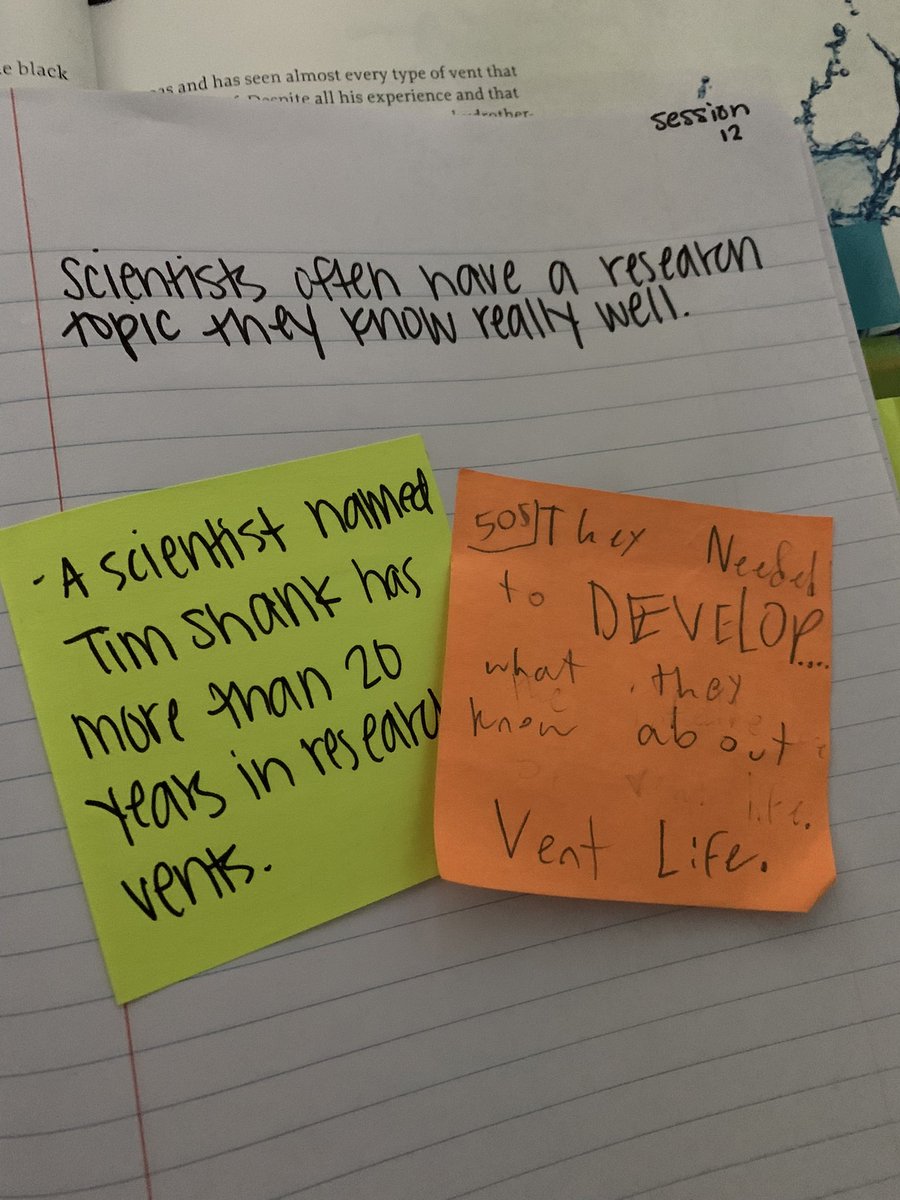 e black
as and has seen almost every type of vent that
Despite all his experience and that
session
12
Scientists often have a research
topic they know really well.
- A scientist named
Tim Shank has
more than 20
years in research
vents.
They Needed
to DEVELOP....
what they
know about
Vent Life.
life.